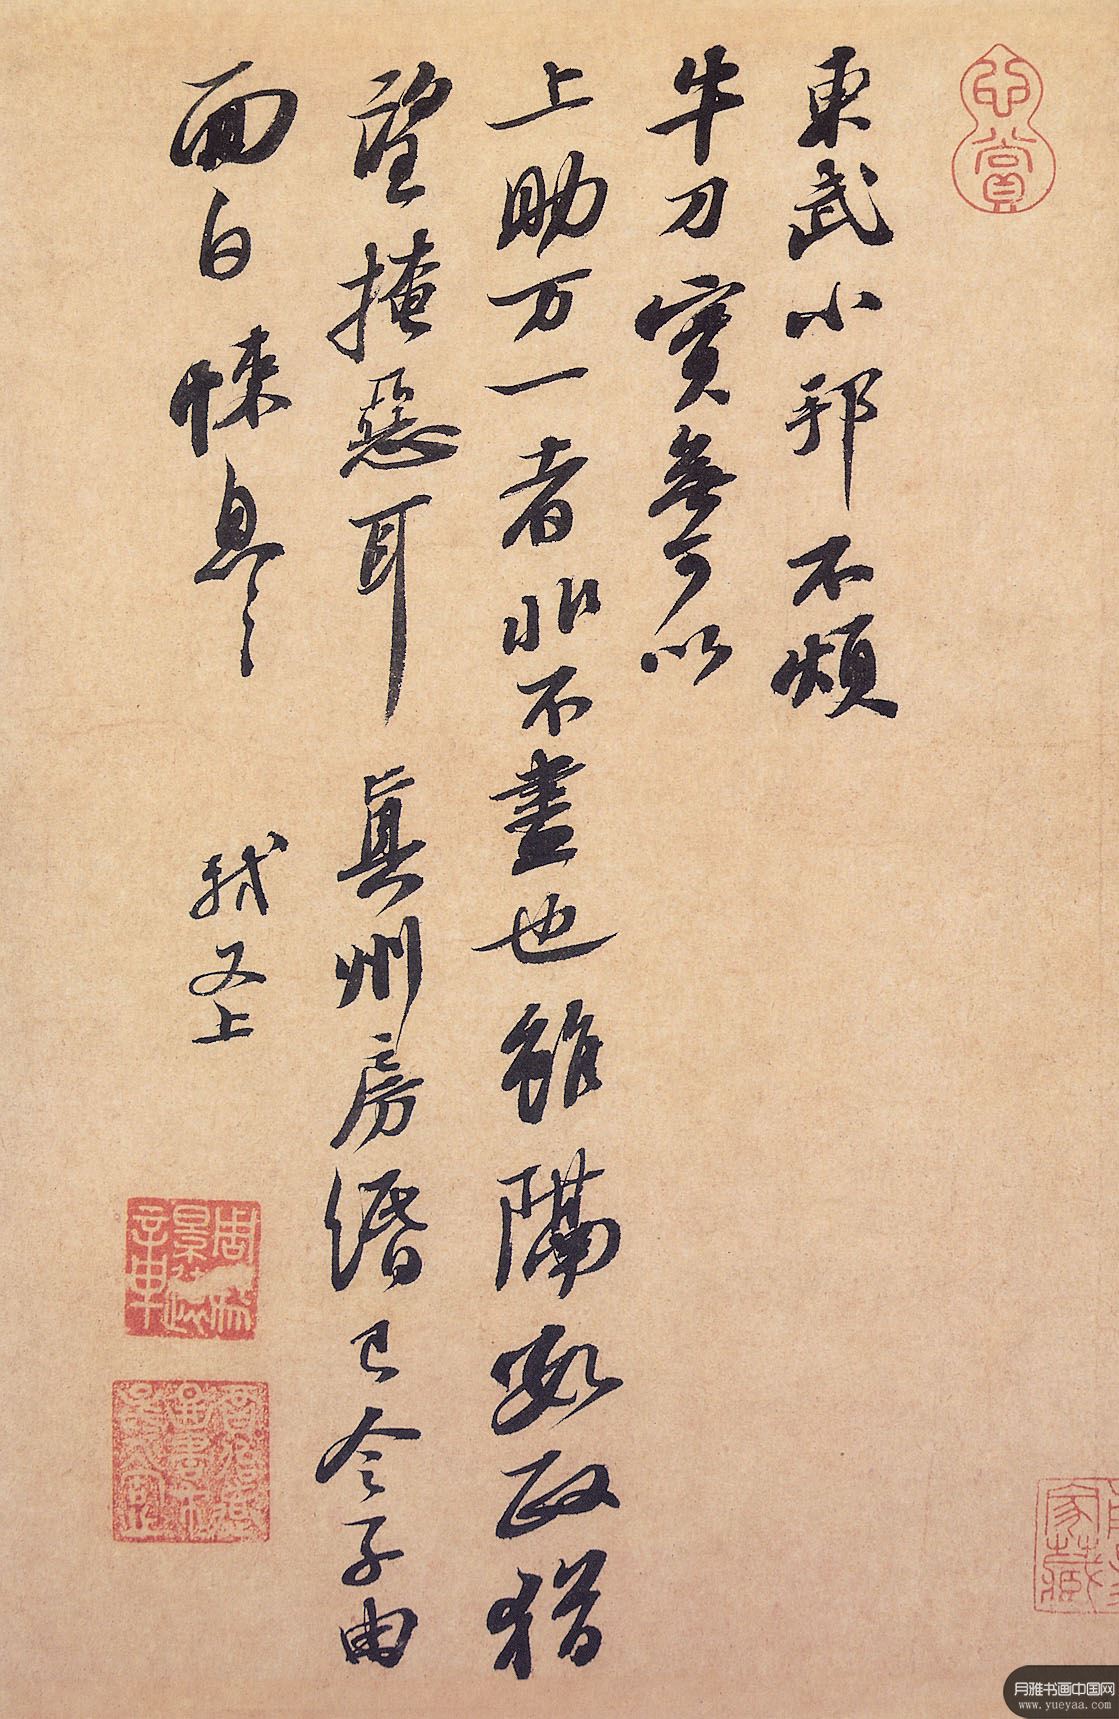 心賞
東武小邦不煩
牛刀實無可以
上助万一者非不盡也雖隔數政猶
望掩惡耳眞州房緡已令子由
面白悚息〻 軾又上
家藏
月雅书画中国网
www.yueyaa.com